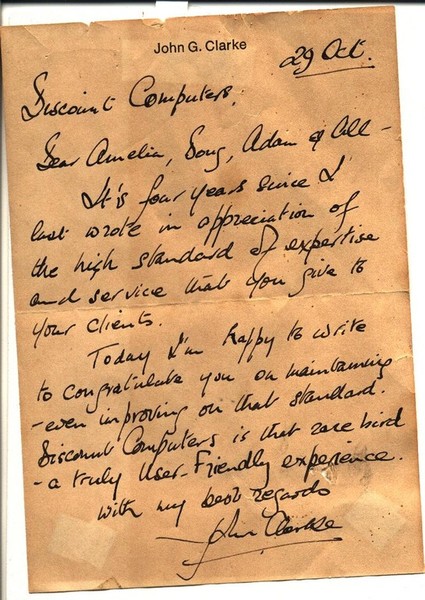 John G. Clarke
29 Oct.
Discount Computers,
Dear Amelia, Doug, Adam & all -
It's four years since I
last wrote in appreciation of
the high standard of expertise
and service that you give to
your clients.
Today I'm happy to write
to congratulate you on maintaining
- even improving on that standard.
Discount Computers is that rare bird
- a truly User-Friendly experience.
with my best regards
John Clarke